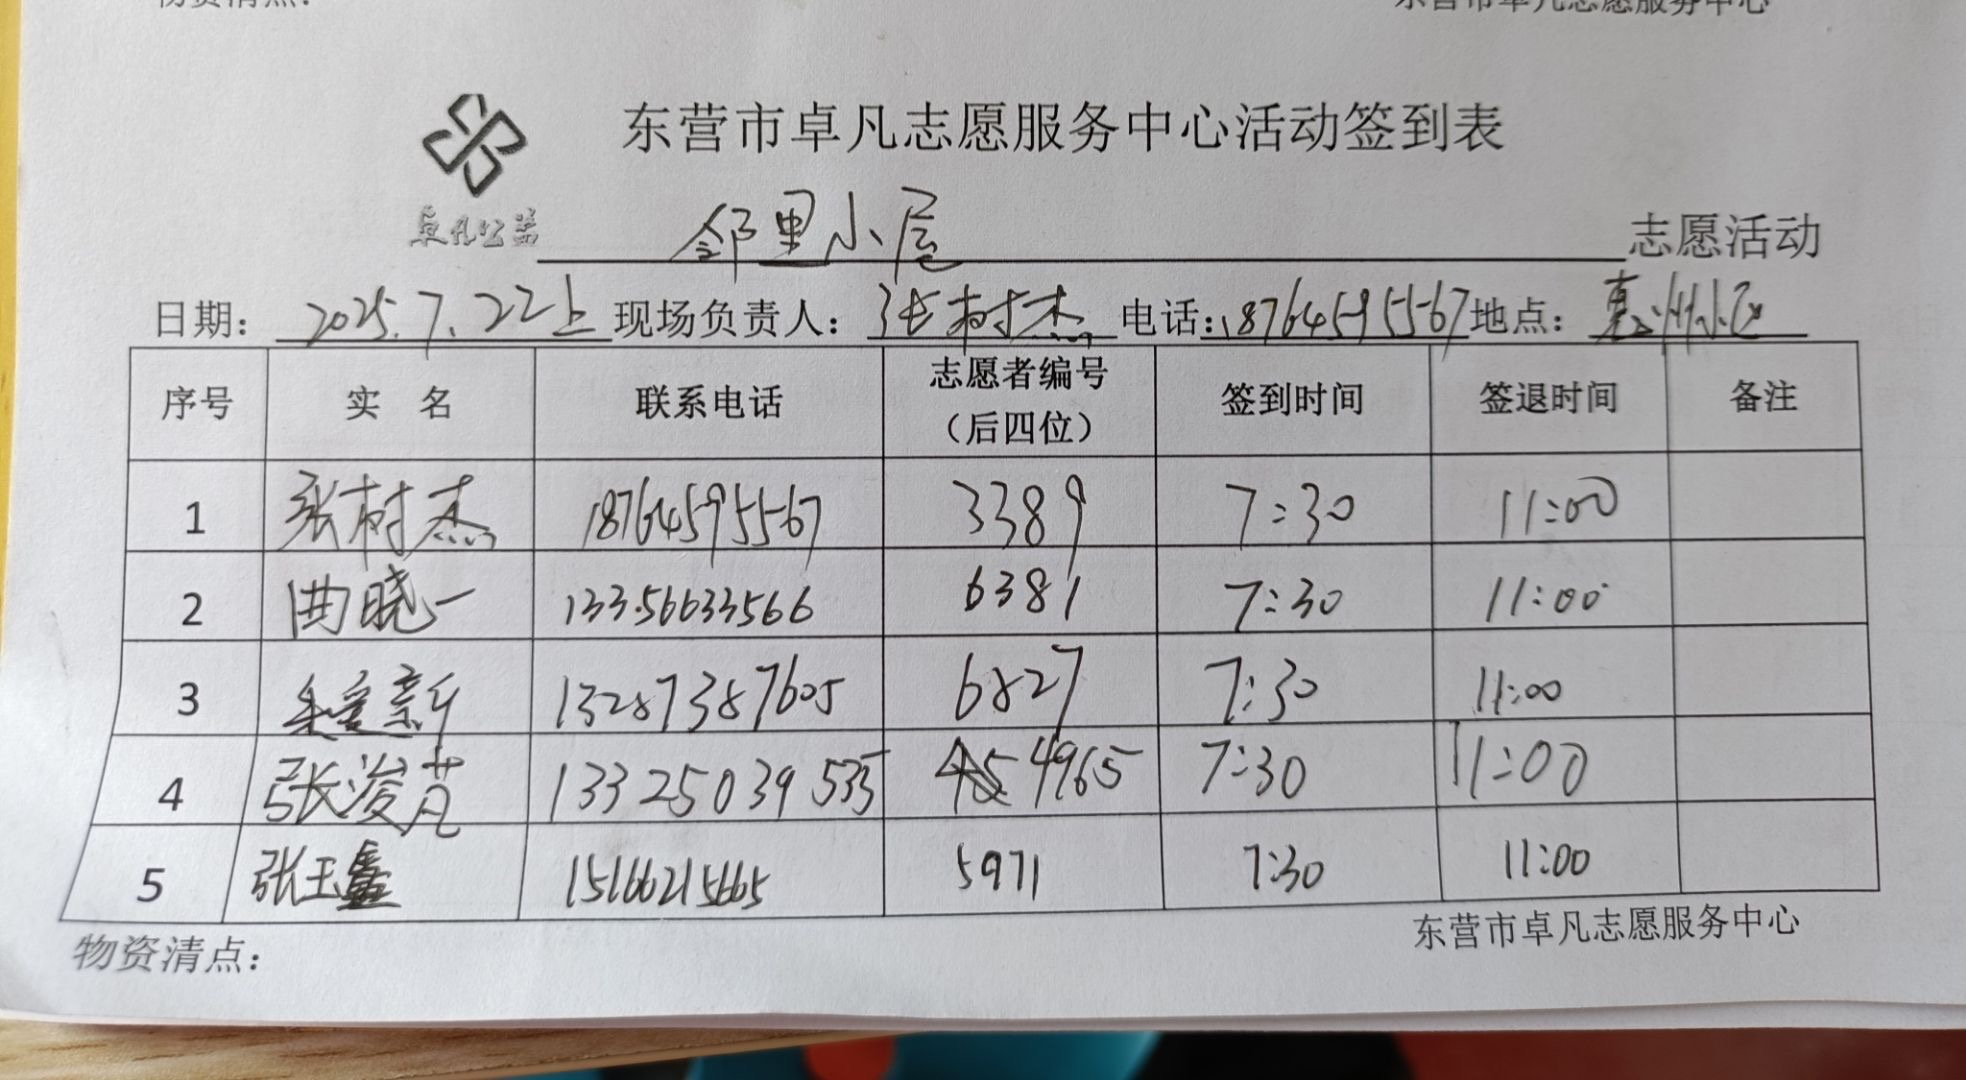 物资清点：
东营市卓凡志愿服务中心
东营市卓凡志愿服务中心活动签到表
卓凡公益
邻里小屋 志愿活动
日期： 2025.7.22上 现场负责人： 张树杰 电话：18764595567 地点： 惠州小区
序号 实 名 联系电话 志愿者编号（后四位） 签到时间 签退时间 备注
1 张树杰 18764595567 3389 7:30 11:00
2 曲晓一 13356633566 6381 7:30 11:00
3 13287387605 6827 7:30 11:00
4 张浚芃 13325039535 4965 7:30 11:00
5 张玉鑫 15166215665 5971 7:30 11:00
东营市卓凡志愿服务中心
物资清点：